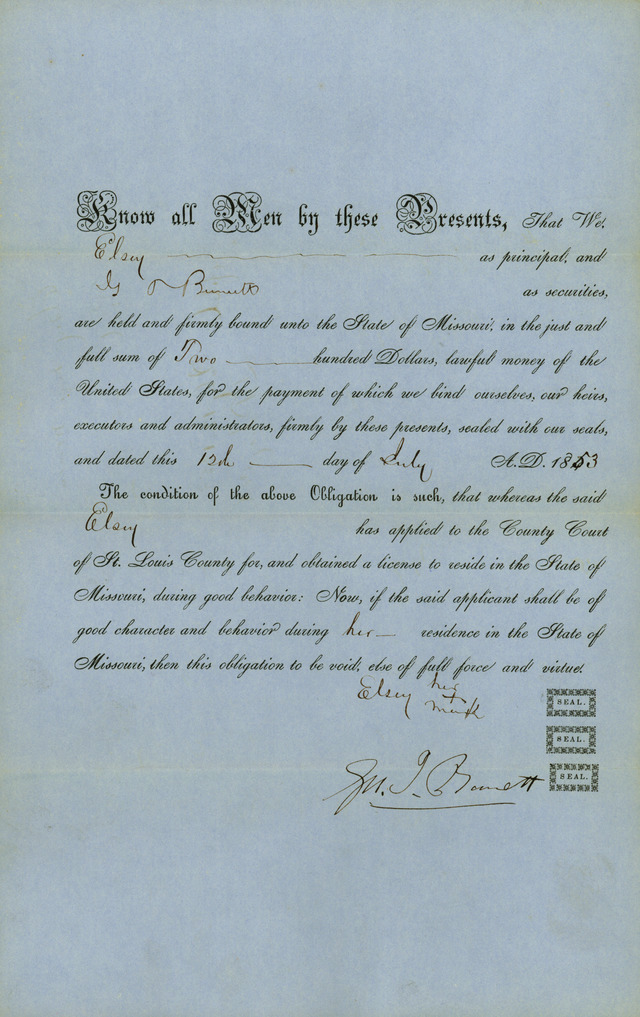 Know all Men by these Presents, That We,
Elsey as principal, and
as securities,
are held and firmly bound unto the State of Missouri, in the just and
full sum of Two hundred Dollars, lawful money of the
United States, for the payment of which we bind ourselves, our heirs,
executors and administrators, firmly by these presents, sealed with our seals,
and dated this day of July A. D. 1853
The condition of the above Obligation is such, that whereas the said
Elsey has applied to the County Court
of St. Louis County for, and obtained a license to reside in the State of
Missouri, during good behavior: Now, if the said applicant shall be of
good character and behavior during her residence in the State of
Missouri, then this obligation to be void, else of full force and virtue.
Elsey her
x
mark
SEAL.
SEAL.
SEAL.